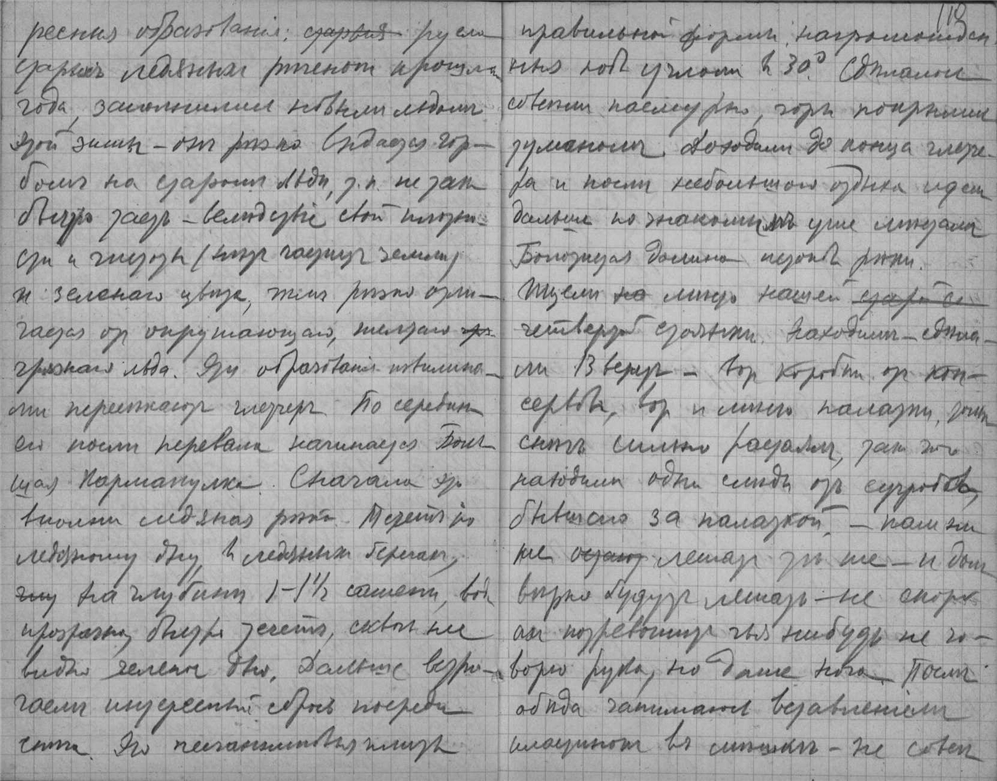 ресныя образованія: старыя русла
старыхъ ледяныхъ рѣченокъ прошл.
года, заполнились новымъ льдомъ
этой зимы – онъ рѣзко выдается гор-
бомъ на старомъ льду, т.к. не такъ
быстро таетъ – вслѣдствіе своей плотно-
сти и чистоты (нѣтъ частицъ земли)
и зеленаго цвѣта, тѣмъ рѣзко отли-
чается отъ окружающаго, желтаго
грязнаго льда. Эти образованія извилина-
ми пересѣкаютъ глетчеръ. По серединѣ
его послѣ перевала начинается Боль-
шая Карманулка. Сначала это
вполнѣ ледяная рѣка. Течетъ по
ледяному дну, въ ледяныхъ берегахъ,
на глубинѣ 1–1½ сажени, вода
прозрачна, быстро течетъ, сквозь нее
видно зеленое дно. Дальше встрѣ-
чаемъ интересный сбросъ посреди
снѣга. Это песчаниковыя плиты
119
правильной формы, нагроможден-
ныя подъ угломъ въ 30° Сдѣлалось
совсѣмъ пасмурно, горы покрылись
туманомъ. Доходимъ до конца глетче-
ра и послѣ небольшого отдыха идемъ
дальше по знакомымъ уже мѣстамъ
Болотистая долина истоковъ рѣки.
Ищемъ мѣсто нашей
четвертой стоянки. Находимъ – сдѣла-
ли 13 верстъ – вотъ коробки отъ кон-
сервовъ, вотъ и мѣсто палатки, только
снѣгъ сильно растаялъ, такъ что
находимъ одни слѣды отъ сугробовъ,
бывшаго за палаткой, – камни
же лежатъ тѣ же – и долго
вѣрно будутъ лежать – не скоро
ихъ потревожитъ чья нибудь не го-
ворю рука, но даже нога. Послѣ
обѣда занимаюсь вставленіемъ
пластинокъ въ мѣшкѣ – не совсѣмъ